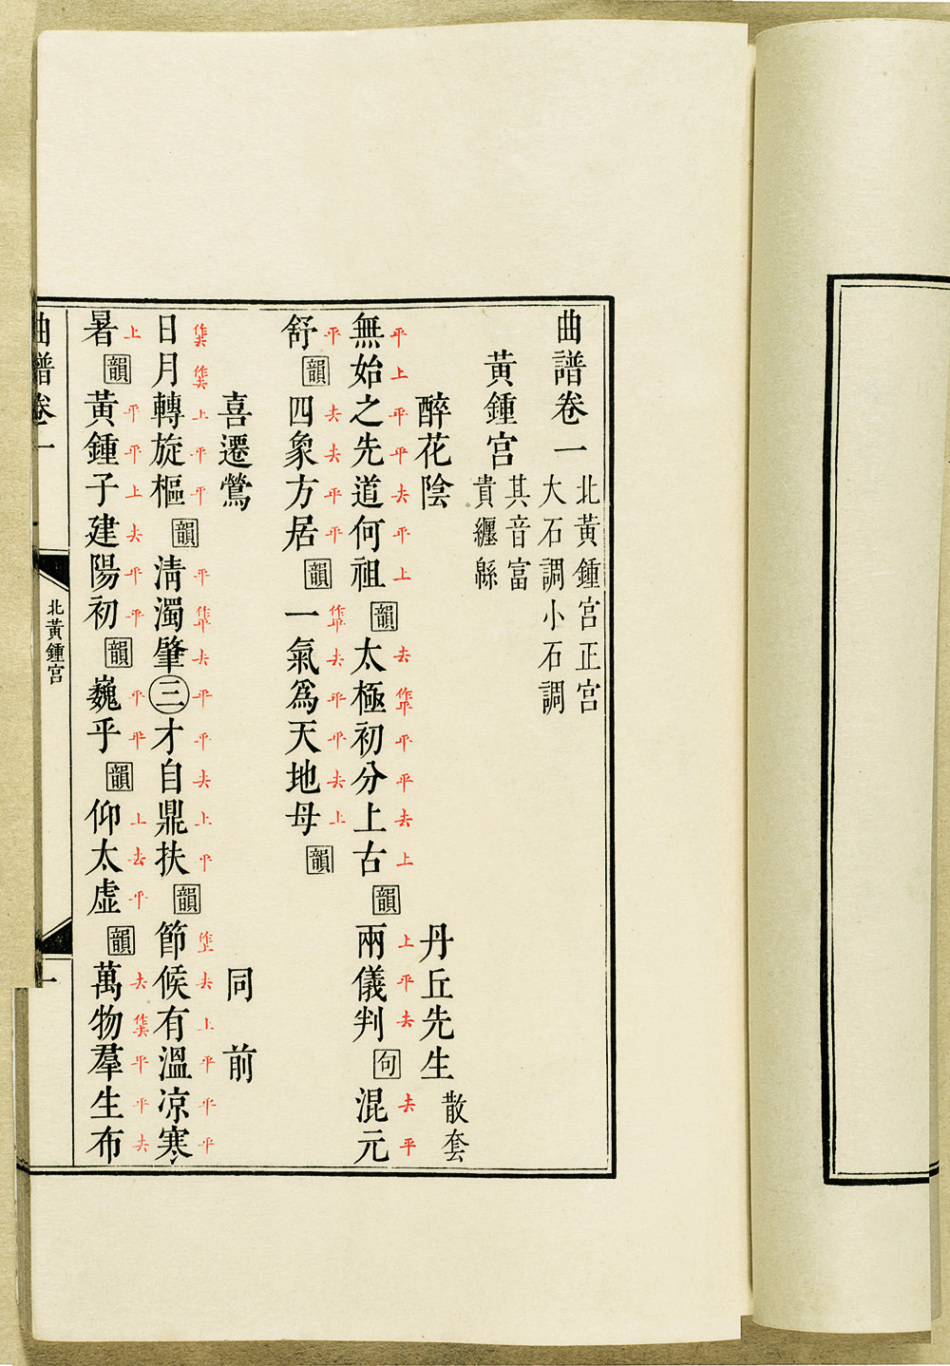 曲譜卷一北黃鍾宮正宮
大石調小石調
黃鍾宮其音富
貴纏緜
醉花陰 丹丘先生散套
平上平平去平上去作平平平去上上平去去平
無始之先道何祖韻太極初分上古韻兩儀判句混元
平去去平平作平去平平去上
舒韻四象方居韻一氣爲天地母韻
喜遷鶯 同前
作去作去上平平平作平去平平去上平作上去上平平平
日月轉旋樞韻清濁肇三才自鼎扶韻節候有溫凉寒
上平平上去平平平平上去平去作去平平去
暑韻黃鍾子建陽初韻巍乎韻仰太虛韻萬物羣生布
曲譜卷一
北黃鍾宮
一